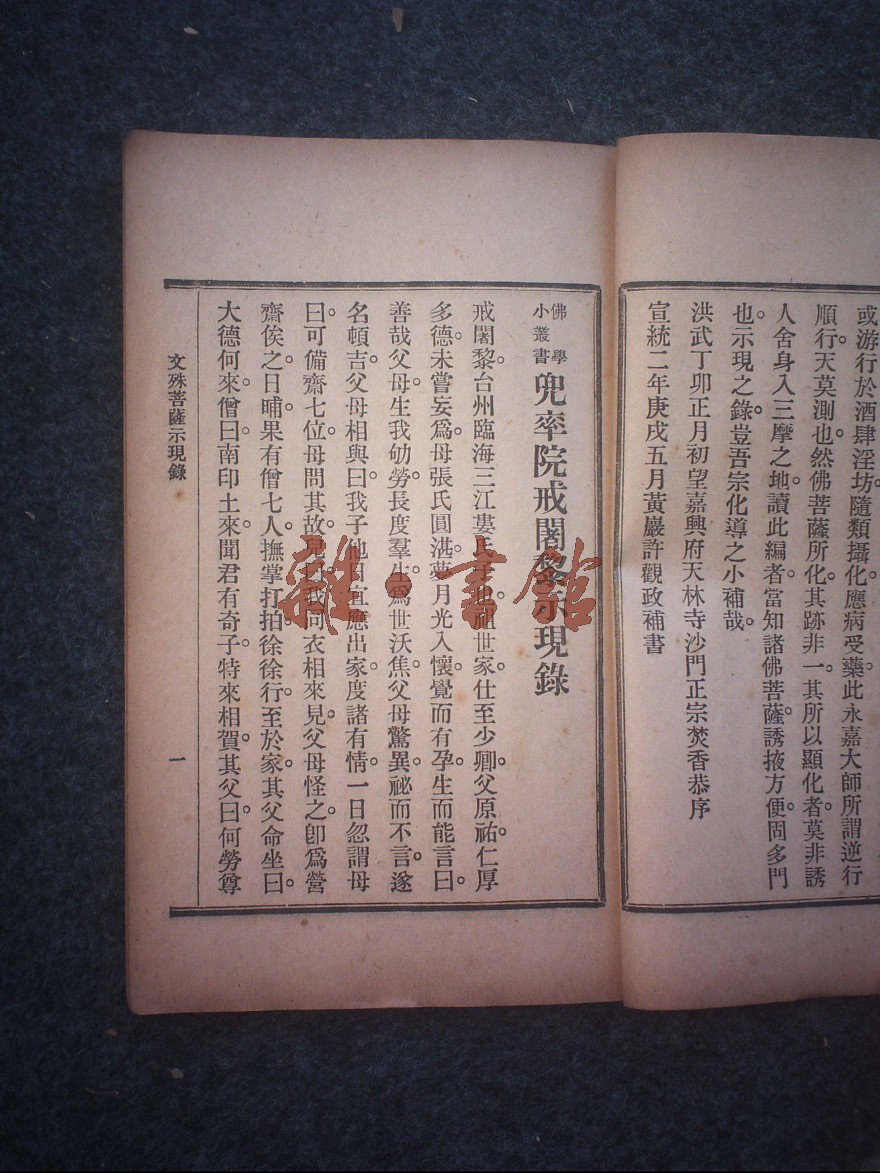 或游行於酒肆淫坊隨類攝化應病受藥此永嘉大師所謂逆行
順行天莫測也然佛菩薩所化其跡非一其所以顯化者莫非誘
人舍身入三摩之地讀此編者當知諸佛菩薩誘掖方便固多門
也示現之錄豈吾宗化導之小補哉
洪武丁卯正月初望嘉興府天林寺沙門正宗焚香恭序
宣統二年庚戌五月黃巖許觀政補書
佛學
小叢書
兜率院戒闍黎示現錄
戒闍黎台州臨海三江婁氏子也祖世家仕至少卿父原祐仁厚
多德未嘗妄爲母張氏圓湛夢月光入懷覺而有孕生而能言曰
善哉父母生我劬勞長度羣生爲世沃焦父母驚異祕而不言遂
名頓吉父母相與曰我子他日宜應出家度諸有情一日忽謂母
曰可備齋七位母問其故兒曰我同衣相來見父母怪之卽爲營
齋俟之日晡果有僧七人撫掌打拍徐徐行至於家其父命坐曰
大德何來僧曰南印土來聞君有奇子特來相賀其父曰何勞尊
文殊菩薩示現錄
一
雜·書館